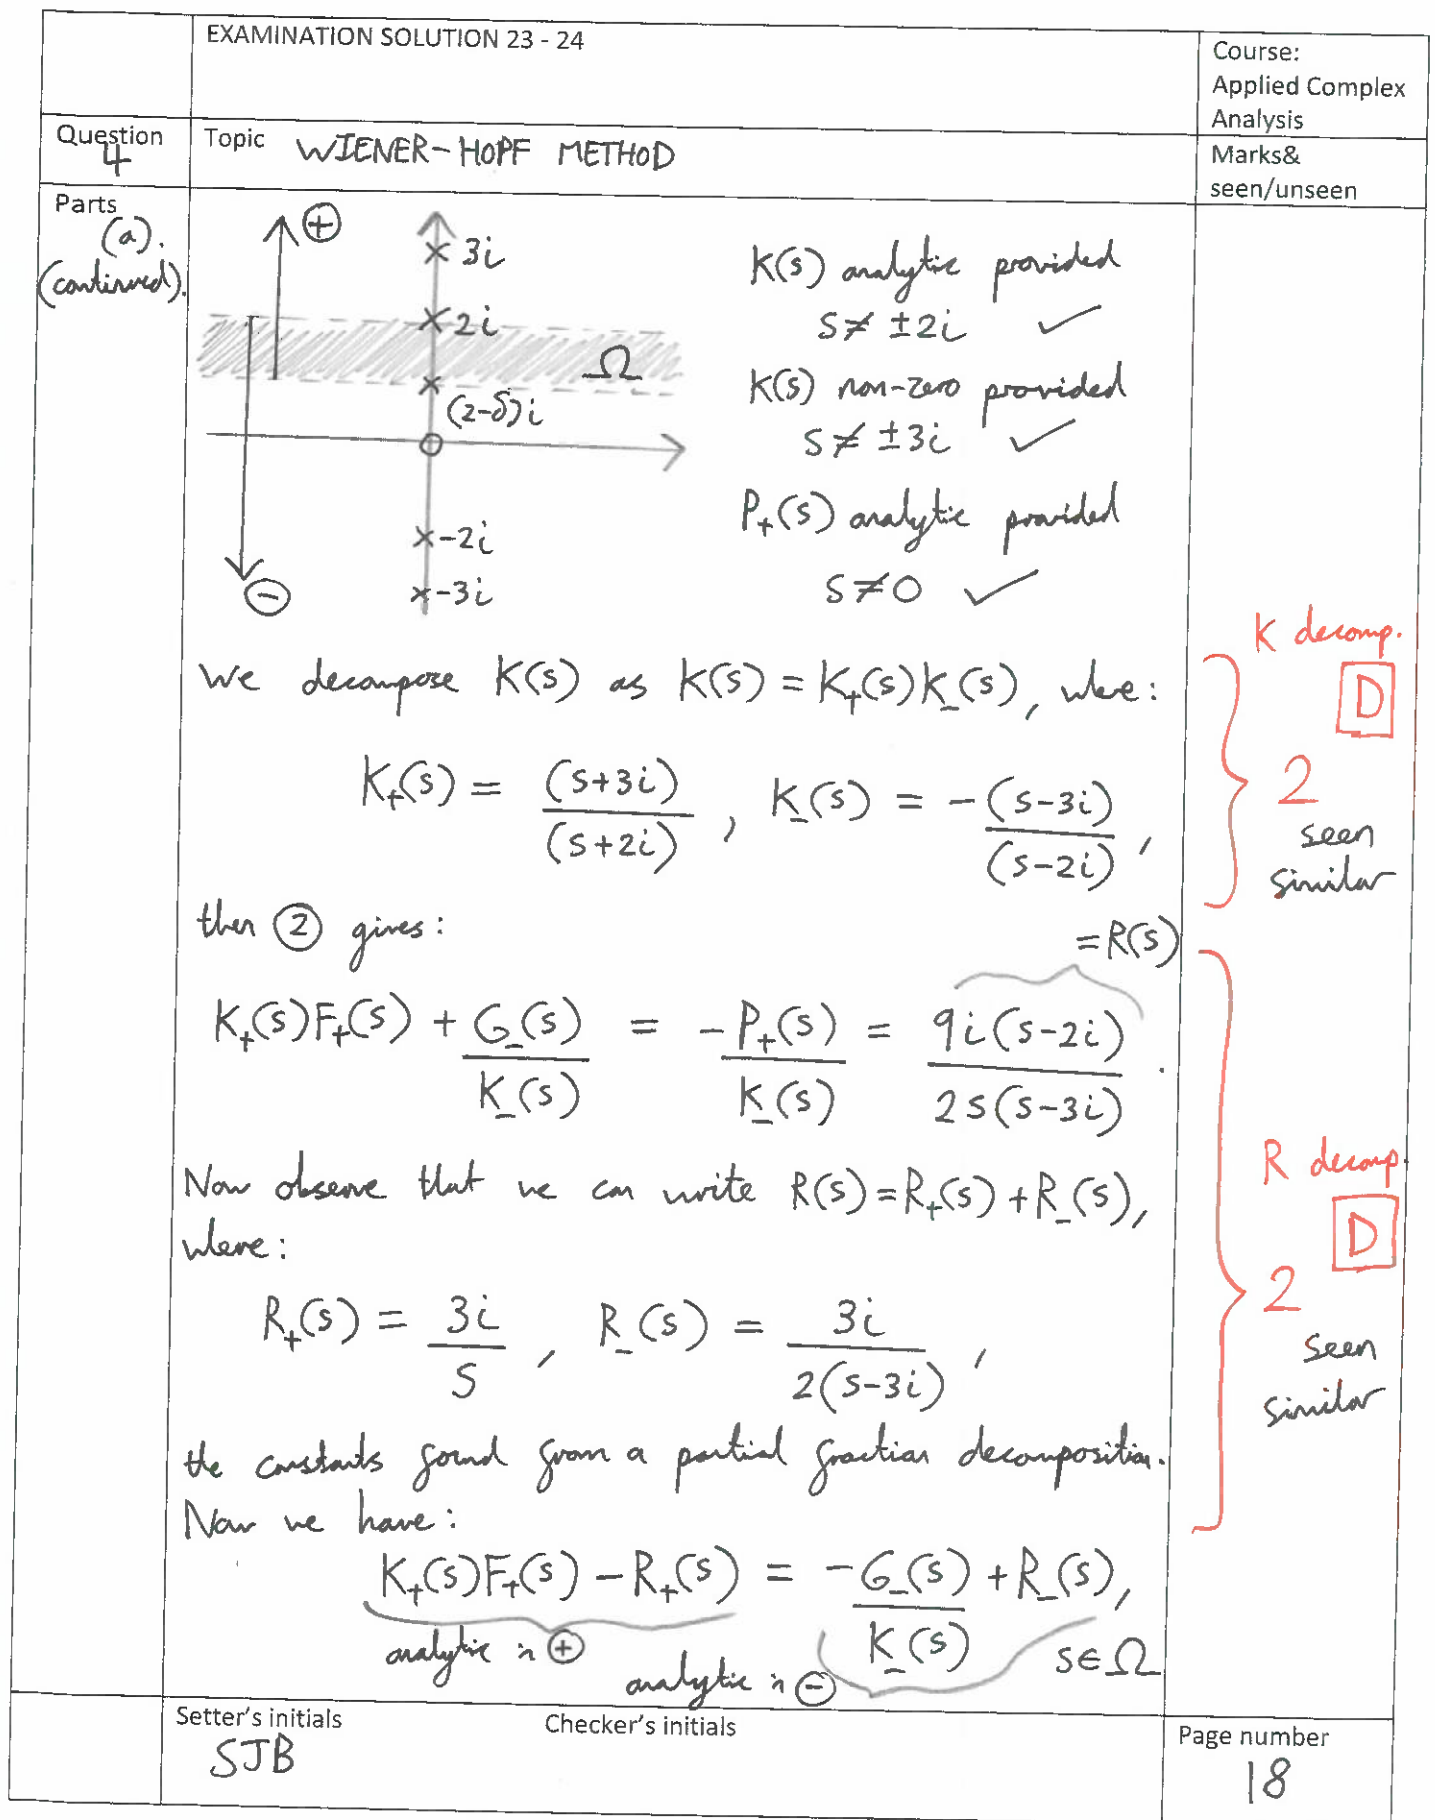 EXAMINATION SOLUTION 23 - 24
Course:
Applied Complex
Analysis
Question
4
Topic WIENER-HOPF METHOD
Marks&
seen/unseen
Parts
(a).
(continued).
⊕
3i
2i
Ω
(2-δ)i
-2i
-3i
⊖
K(s) analytic provided
s ≠ ±2i ✓
K(s) non-zero provided
s ≠ ±3i ✓
P₊(s) analytic provided
s ≠ 0 ✓
We decompose K(s) as K(s) = K₊(s)K₋(s), where:
K₊(s) = (s+3i)/(s+2i), K₋(s) = -(s-3i)/(s-2i),
K decomp.
D
2
seen
similar
then ② gives:
= R(s)
K₊(s)F₊(s) + G₋(s)/K₋(s) = -P₊(s)/K₋(s) = 9i(s-2i)/2s(s-3i).
Now observe that we can write R(s) = R₊(s) + R₋(s),
where:
R₊(s) = 3i/s, R₋(s) = 3i/2(s-3i),
R decomp.
D
2
seen
similar
the constants found from a partial fraction decomposition.
Now we have:
K₊(s)F₊(s) - R₊(s) = -G₋(s)/K₋(s) + R₋(s),
analytic in ⊕
analytic in ⊖
s∈Ω
Setter's initials
SJB
Checker's initials
Page number
18